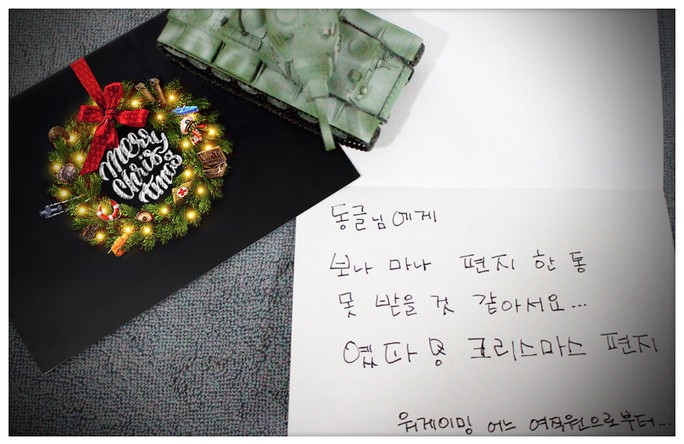 Merry
Christ
mas
동글님에게
보나 마나 편지 한 통
못 받을 것 같아서요...
옜다 영 크리스마스 편지
워게이밍 어느 여직원으로부터...